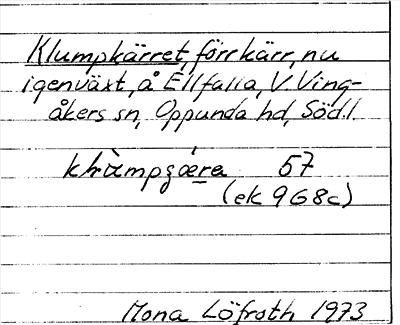 Klumpkärret, förr kärr, nu
igenväxt, å Ellfalla, V. Ving-
åkers sn, Oppunda hd, Södl.
57
(ek 9G8c)
Mona Löfroth 1973